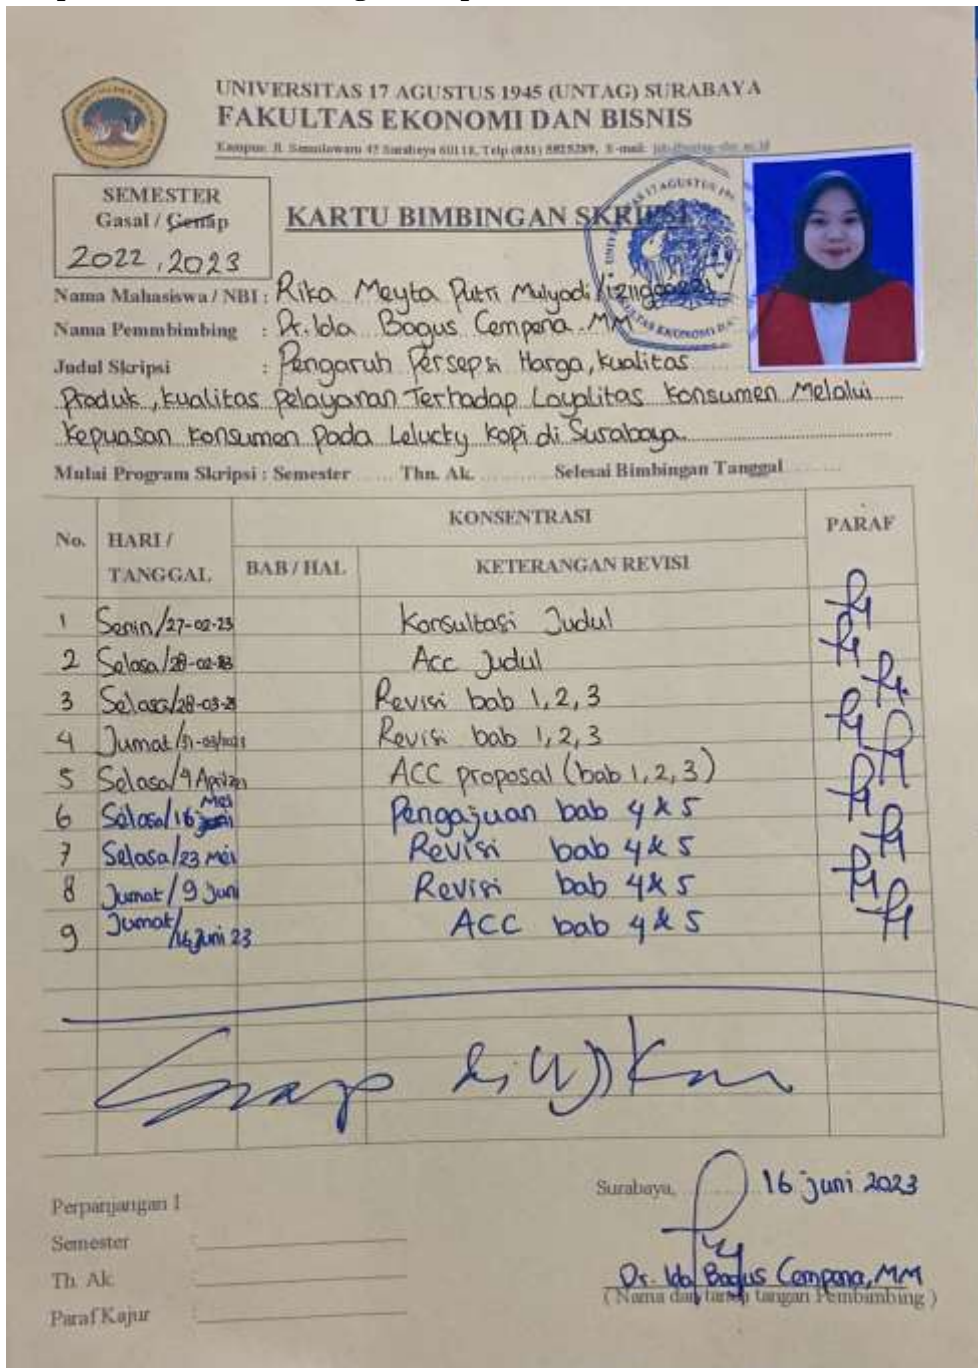 UNIVERSITAS 17 AGUSTUS 1945 (UNTAG) SURABAYA
FAKULTAS EKONOMI DAN BISNIS
Kampus: Jl. Semolowaru 45 Surabaya 60118, Telp (031) 5925289, E-mail:
SEMESTER
Gasal / Genap
2022, 2023
KARTU BIMBINGAN SKRIPSI
Nama Mahasiswa / NBI : Rika Meyta Putri Mulyadi /
Nama Pemmbimbing : Dr. Ida Bagus Cempena. MM
Judul Skripsi : Pengaruh Persepsi Harga, Kualitas
Produk, Kualitas Pelayanan Terhadap Loyalitas Konsumen Melalui
Kepuasan Konsumen Pada Lelucky Kopi di Surabaya
Mulai Program Skripsi : Semester ...... Thn. Ak. ............ Selesai Bimbingan Tanggal
No. HARI / TANGGAL KONSENTRASI PARAF
BAB / HAL KETERANGAN REVISI
1 Senin/27-02-23 Konsultasi Judul
2 Selasa/28-02-23 Acc Judul
3 Selasa/28-03-23 Revisi bab 1,2,3
4 Jumat/31-03/2023 Revisi bab 1,2,3
5 Selasa/4 April ACC proposal (bab 1,2,3)
6 Selasa/16 Mei Pengajuan bab 4 & 5
7 Selasa/23 Mei Revisi bab 4 & 5
8 Jumat/9 Juni Revisi bab 4 & 5
9 Jumat/16 Juni 23 ACC bab 4 & 5
Perpanjangan I
Semester :
Th. Ak. :
Paraf Kajur :
Surabaya, 16 juni 2023
Dr. Ida Bagus Cempena, MM
(Nama dan tanda tangan Pembimbing)